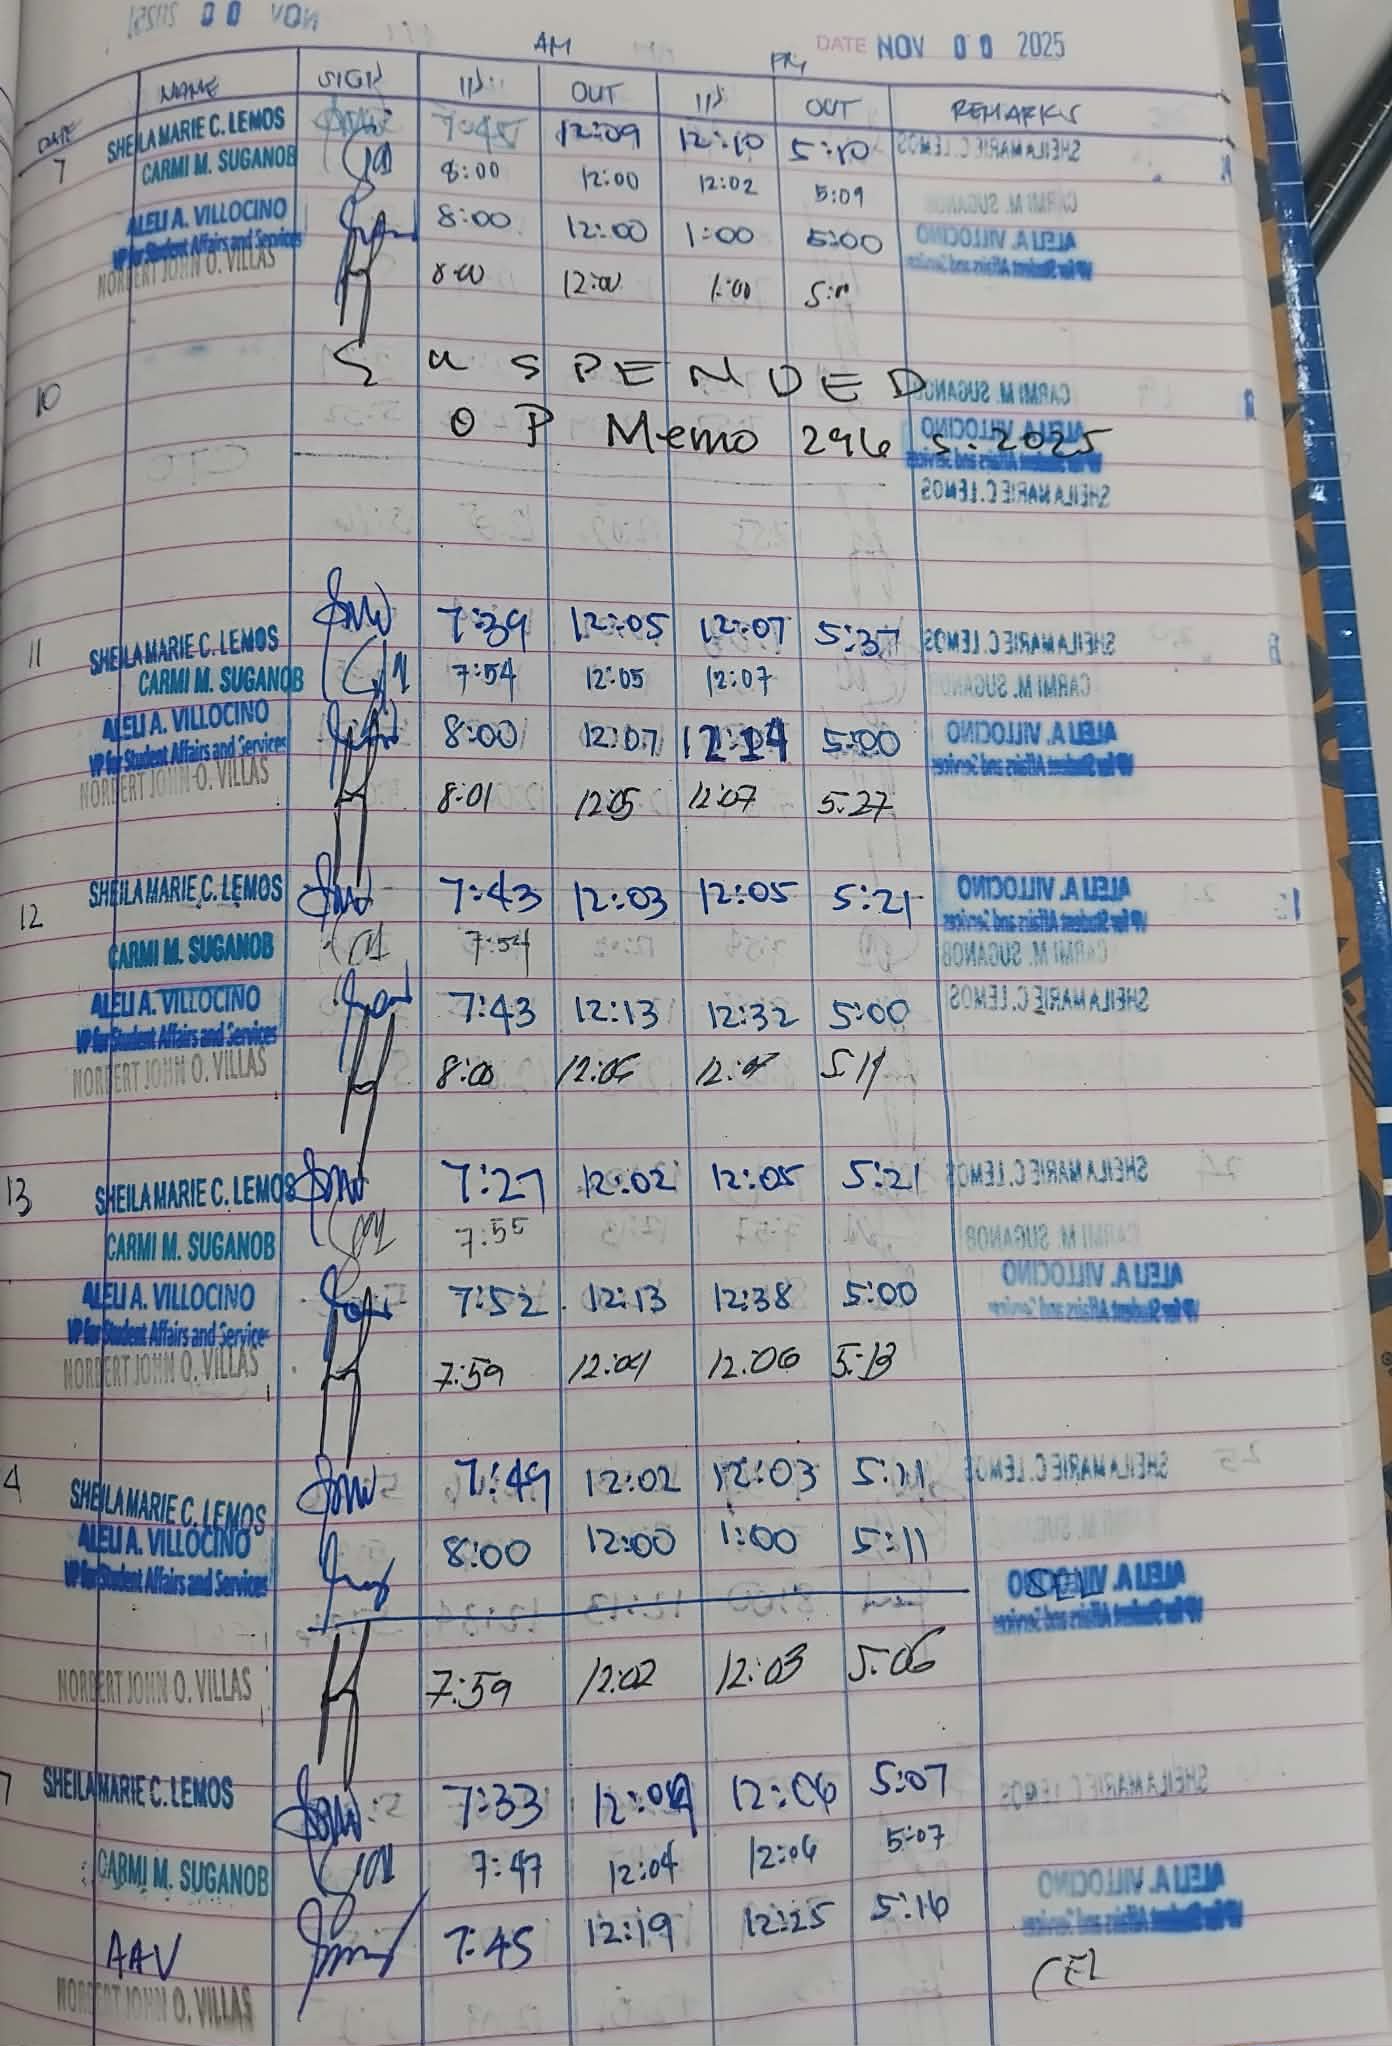 DATE NOV 00 2025
AM PM
DATE NAME SIGN IN OUT IN OUT REMARKS
7 SHEILA MARIE C. LEMOS 7:45 12:09 12:10 5:10
CARMI M. SUGANOB 8:00 12:00 12:02 5:09
ALELI A. VILLOCINO 8:00 12:00 1:00 5:00
VP for Student Affairs and Services
NORBERT JOHN O. VILLAS 8:00 12:00 1:00
10 SUSPENDED
OP Memo 296 s. 2025
11 SHEILA MARIE C. LEMOS 7:39 12:05 12:07 5:37
CARMI M. SUGANOB 7:54 12:05 12:07
ALELI A. VILLOCINO 8:00 12:07 12:14 5:00
VP for Student Affairs and Services
NORBERT JOHN O. VILLAS 8:01 12:05 12:07 5:27
12 SHEILA MARIE C. LEMOS 7:43 12:03 12:05 5:21
CARMI M. SUGANOB 7:54
ALELI A. VILLOCINO 7:43 12:13 12:32 5:00
VP for Student Affairs and Services
NORBERT JOHN O. VILLAS 8:00 5:11
13 SHEILA MARIE C. LEMOS 7:27 12:02 12:05 5:21
CARMI M. SUGANOB 7:55
ALELI A. VILLOCINO 7:52 12:13 12:38 5:00
VP for Student Affairs and Service
NORBERT JOHN O. VILLAS 7:59 12:04 12:06 5:13
4 SHEILA MARIE C. LEMOS 7:49 12:02 12:03 5:11
ALELI A. VILLOCINO 8:00 12:00 1:00 5:11
VP for Student Affairs and Services
NORBERT JOHN O. VILLAS 7:59 12:02 12:03 5:06
7 SHEILA MARIE C. LEMOS 7:33 12:04 12:06 5:07
CARMI M. SUGANOB 7:47 12:04 12:06 5:07
AAV 7:45 12:19 12:25 5:16
NORBERT JOHN O. VILLAS CEL